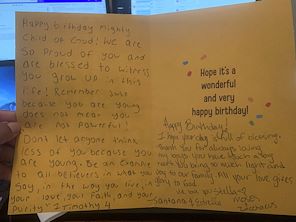 Happy birthday Mighty
Child of God! We are
so proud of you and
are blessed to witness
you grow up in this
life! Remember just
because you are young
does not mean you
are not powerful!
Dont let anyone think
less of you because you
are young. Be an example
to all believers in what you
say, in the way you live, in
your love, your faith, and your
purity" 1 Timothy 4
Hope it's a
wonderful
and very
happy birthday!
Happy Birthday!
I hope your day is full of blessings.
Thank you for always loving
my kids you have such a big
heart. You bring so much light and
joy to our family. All your love gives
glory to God.
We love you
Santana & Estrella